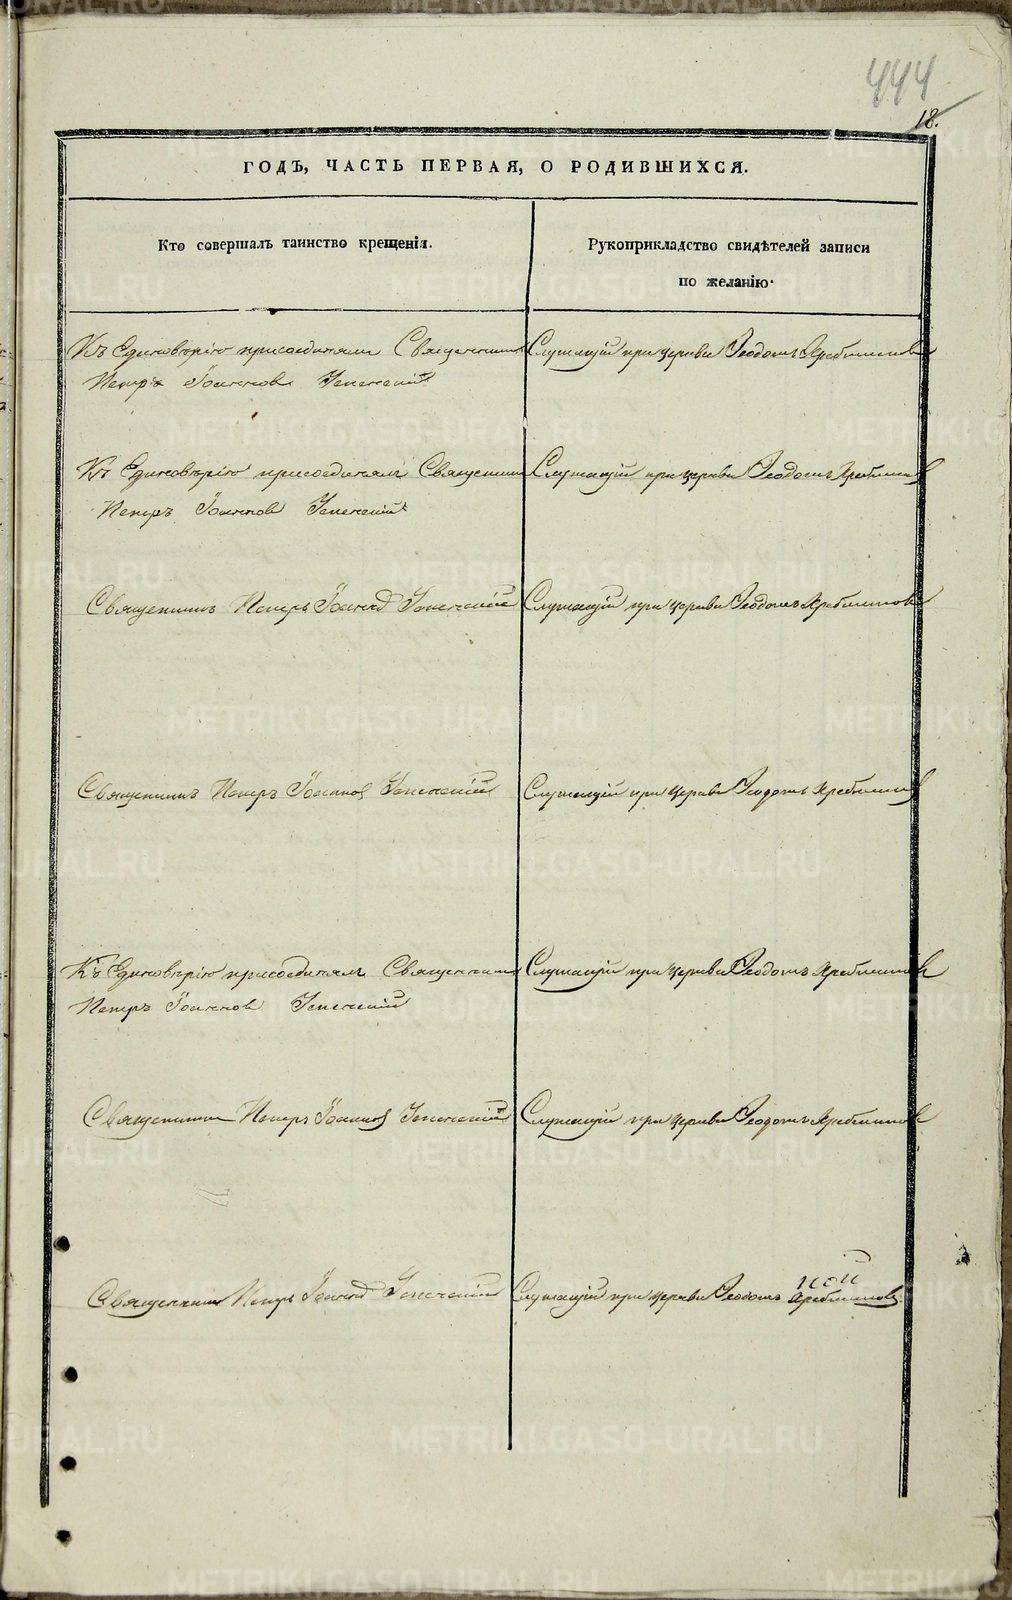 444
18.
ГОДЪ, ЧАСТЬ ПЕРВАЯ, О РОДИВШИХСЯ.
Кто совершалъ таинство крещенія.
Рукоприкладство свидѣтелей записи
по желанію.
Къ Единовѣрію присоединялъ Священникъ
Петръ Іоанновъ
Служащій при церкви Ѳеодотъ
Къ Единовѣрію присоединялъ Священникъ
Петръ Іоанновъ
Служащій при церкви Ѳеодотъ
Священникъ Петръ Іоанновъ
Служащій при церкви Ѳеодотъ
Священникъ Петръ Іоанновъ
Служащій при церкви Ѳеодотъ
Къ Единовѣрію присоединялъ Священникъ
Петръ Іоанновъ
Служащій при церкви Ѳеодотъ
Священникъ Петръ Іоанновъ
Служащій при церкви Ѳеодотъ
Священникъ Петръ Іоанновъ
Служащій при церкви Ѳеодотъ
METRIKI.GASO-URAL.RU